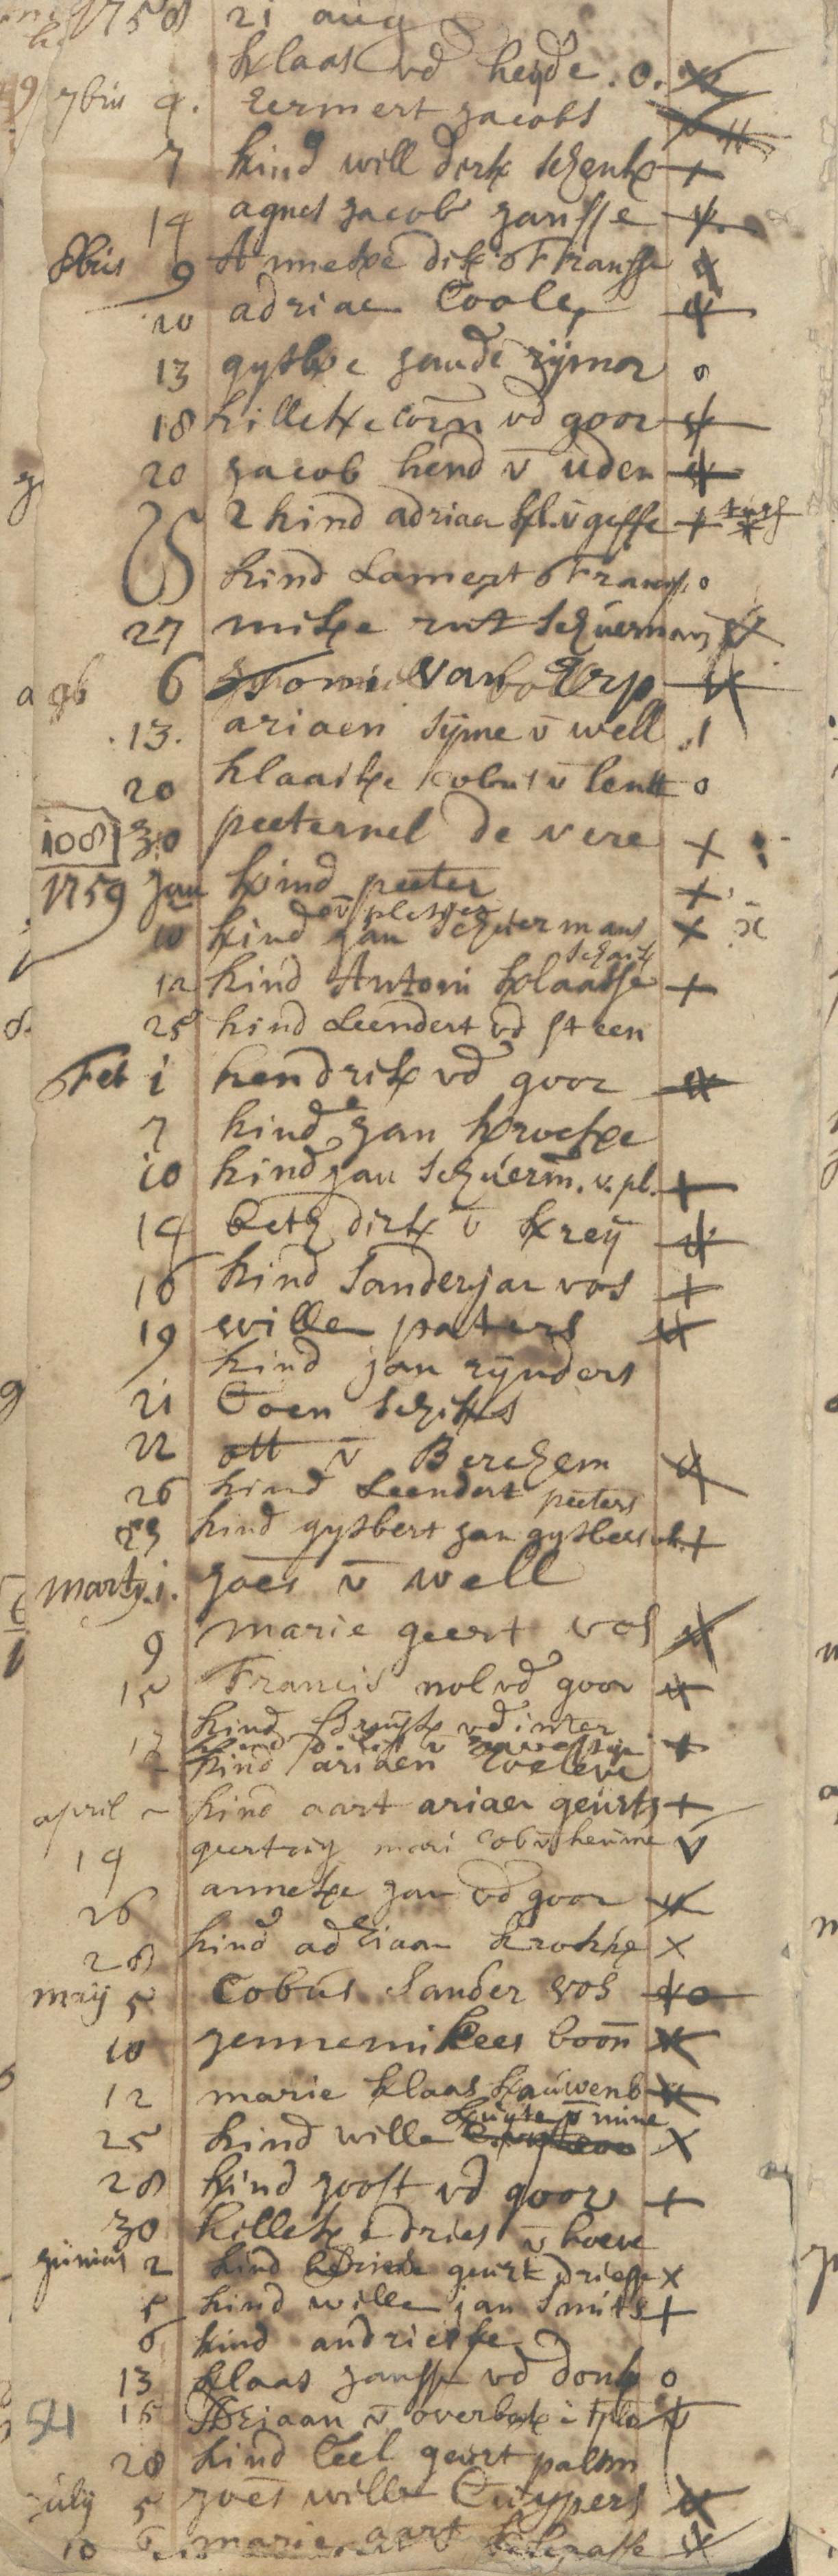 1758 21 aug
klaas vd heyde . o.
7bris 4. Lermert jacobs
7 kind will dirk schenk
14 agnes jacob janssse
8bris 9 Annetxe dirk Franss
10 adriae Coole
13 gysbxe zande rijmor o
18 hilletxe corn vd goor
20 jacob hend v uden
25 2 kind adriaen kl. v gesse
kind Lamert Frans o
27 mitxe rut schuermans
9b 6 Tomi van Erp
13. ariaen sijme v well
20 klaaske cobus v lent o
108 30 peeternel de vere
1759 jan kind peeter
10 kind jan schuermans
v plesger
12 kind Antoni klaasse
25 kind Leendert vd steen
Feb 1 hendrik vd goor
7 kind jan krocke
10 kind jan schuerm. v. pl.
14 beth dirk v kreij
16 kind sanderjan vos
19 wille paters
kind jan rijnders
21 Coen schiks
22 ott v Berchem
26 kind Leendert peeters
29 kind gysbert jan gysbers
marty 1. joes v well
9 marie geert vos
15 Francis nol vd goor
17 kind vd inter
kind ariaen
april kind aart ariaen geurts
19 geertruy mari cob v heume
26 annetxe jan vd goor
28 kind adriaan krokke
maij 5 Cobus sander vos
10 jennemi kees boon
12 marie klaas kauwenb
25 kind wille v mine
28 kind joost vd goor
30 hilletxe dries v hoeve
junius 2 kind geurt driesse
5 kind wille jan smits
6 kind andrieske
13 klaas jansse vd donk o
54 15 Adriaan v overbek
28 kind Ceel geurt palm
july 5 joes wille Cuypers
10 marie aart